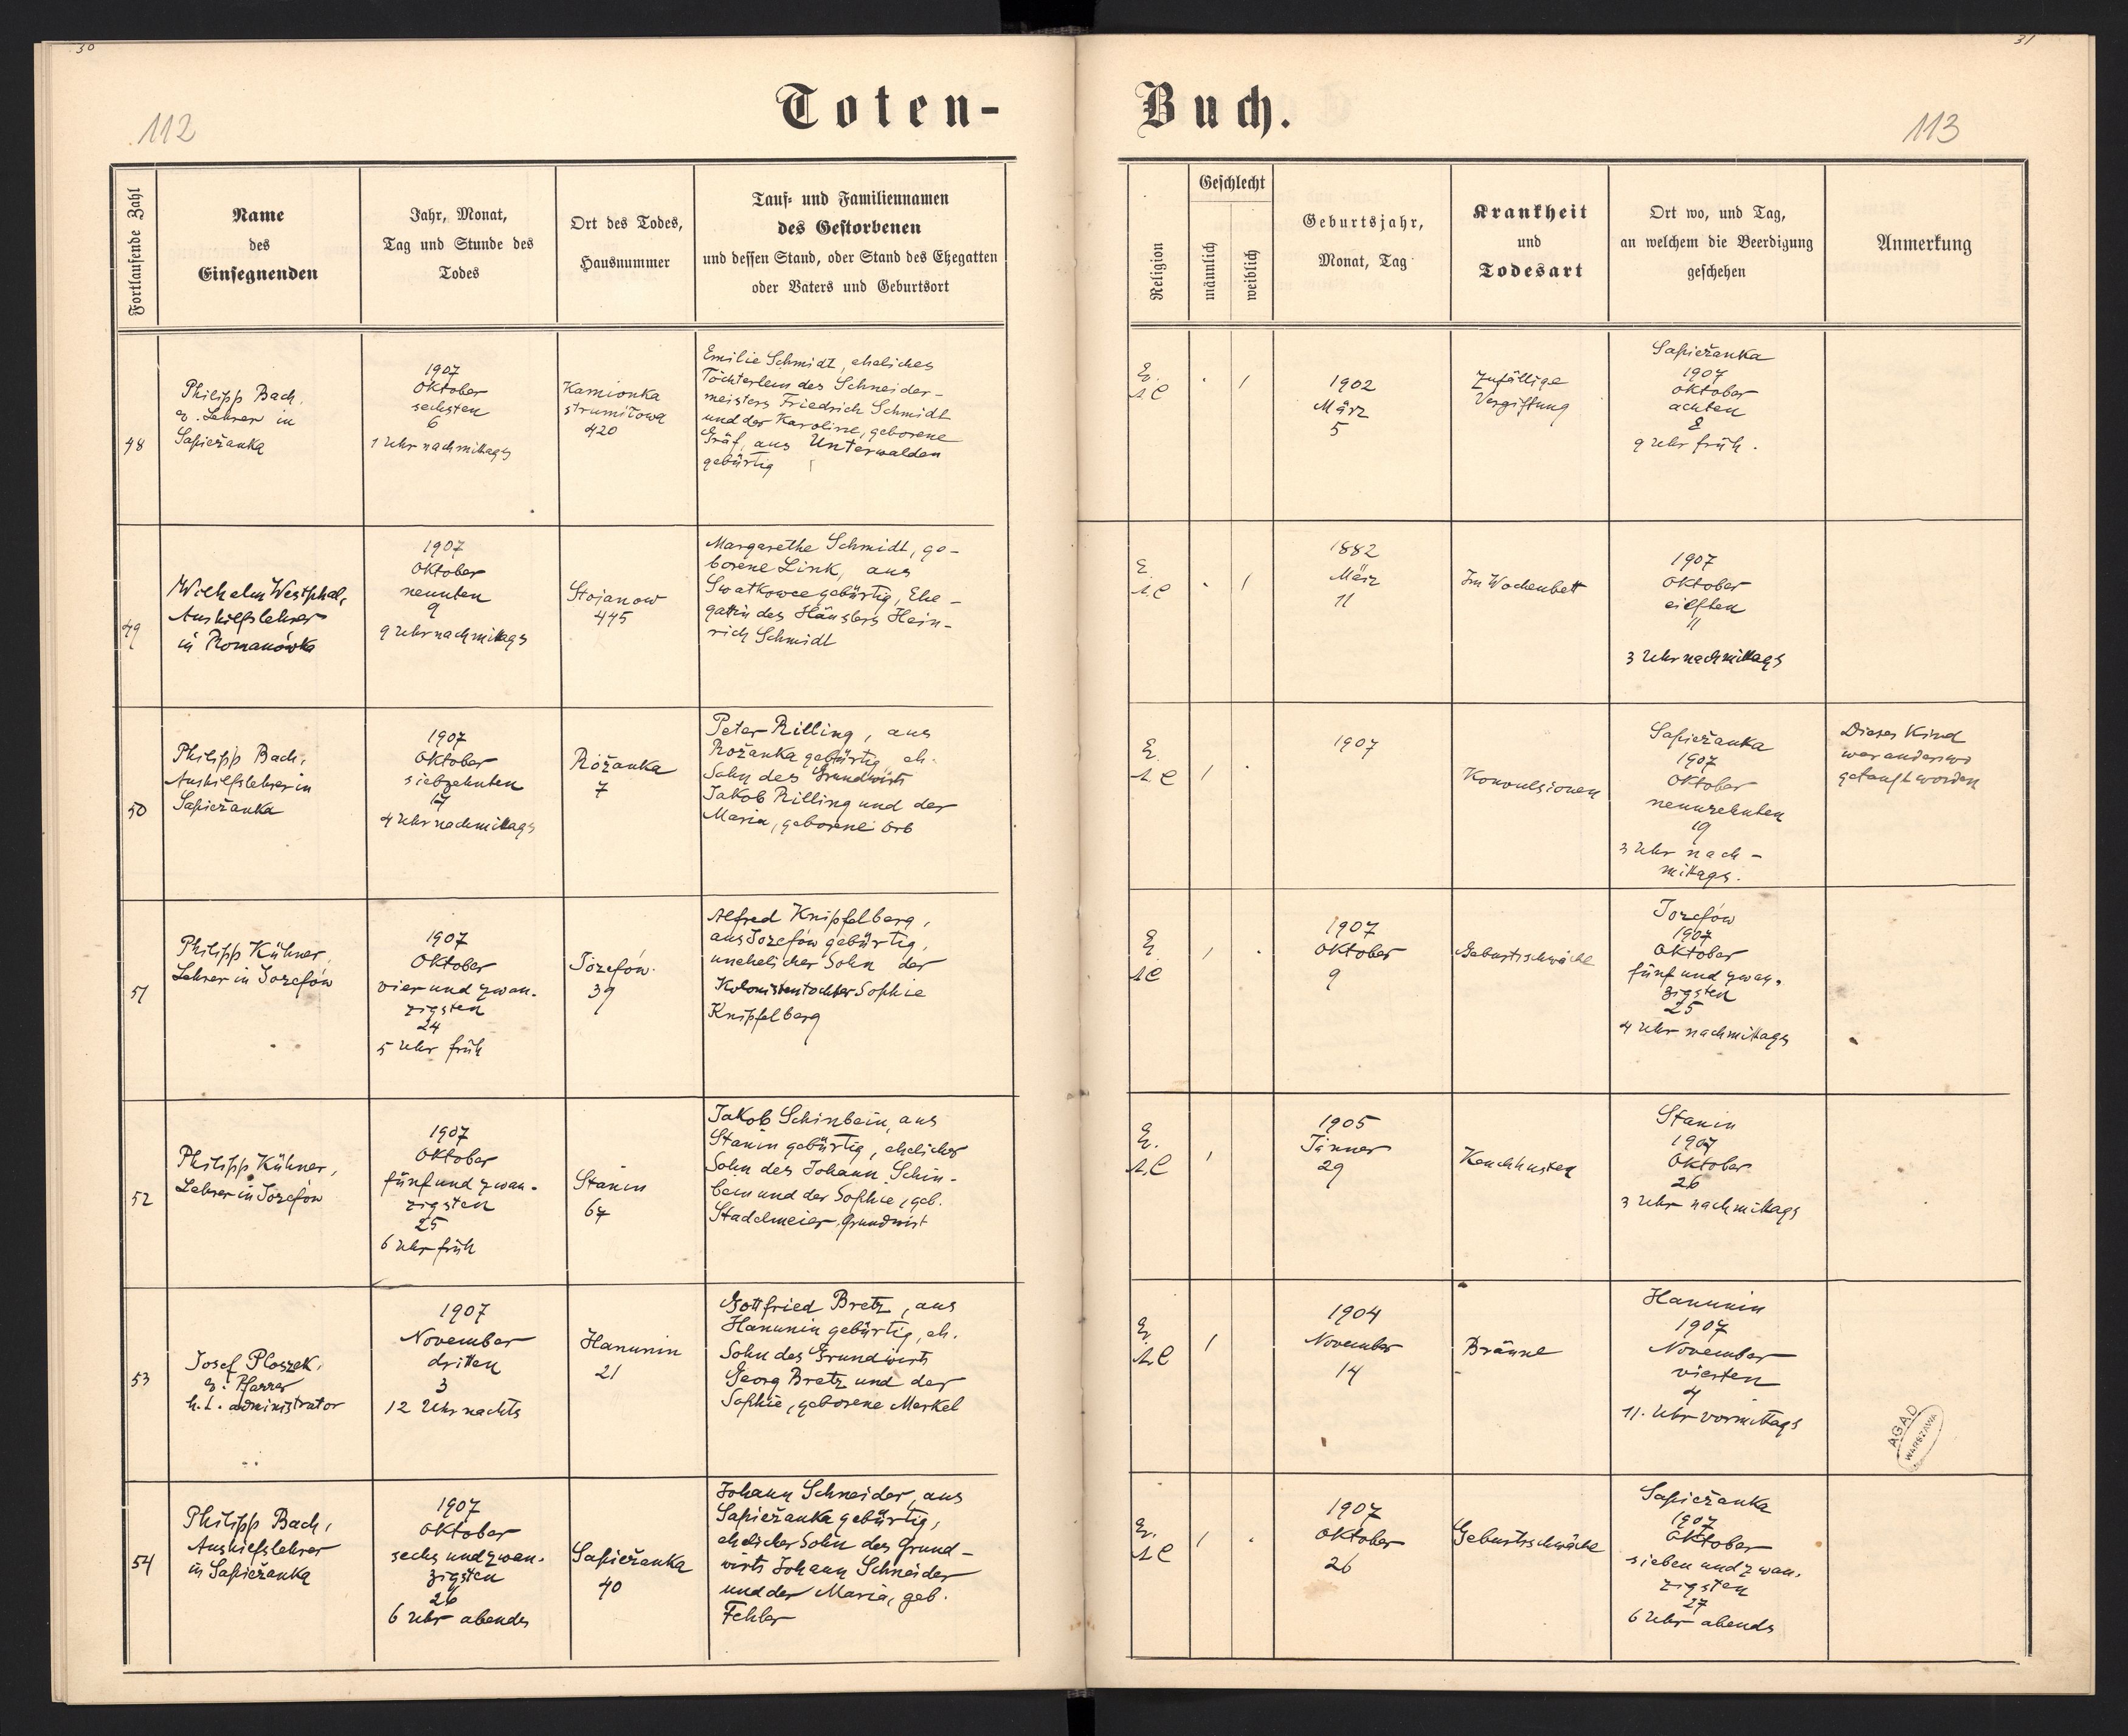 30
31
Toten-
Buch.
112
113
Fortlaufende Zahl
Name
des
Einsegnenden
Jahr, Monat,
Tag und Stunde des
Todes
Ort des Todes,
Hausnummer
Tauf- und Familiennamen
des Gestorbenen
und dessen Stand, oder Stand des Ehegatten
oder Vaters und Geburtsort
Religion
Geschlecht
männlich
weiblich
Geburtsjahr,
Monat, Tag
Krankheit
und
Todesart
Ort wo, und Tag,
an welchem die Beerdigung
geschehen
Anmerkung
48
Philipp Bach,
ev. Lehrer in
Sapieżanka
1907
Oktober
sechsten
6
1 Uhr nachmittags
Kamionka
strumiłowa
420
Emilie Schmidt, eheliches
Töchterlein des Schneider-
meisters Friedrich Schmidt
und der Karoline, geborene
Gräf, aus Unterwalden
gebürtig
Ev.
A.C
. /
1902
März
5
Zufällige
Vergiftung
Sapieżanka
1907
Oktober
achten
8
9 Uhr früh.
49
Wilhelm Westphal,
Aushilfslehrer
in Romanówka
1907
Oktober
neunten
9
9 Uhr nachmittags
Stojanow
445
Margarethe Schmidt, ge-
borene Link, aus
Swatkowce gebürtig, Ehe-
gattin des Häuslers Hein-
rich Schmidt
Ev.
A.C
. /
1882
März
11
Im Wochenbett
1907
Oktober
eilften
11
3 Uhr nachmittags
50
Philipp Bach,
Aushilfslehrer in
Sapieżanka
1907
Oktober
siebzehnten
17
4 Uhr nachmittags
Rożanka
7
Peter Rilling, aus
Rożanka gebürtig, eh.
Sohn des Grundwirts
Jakob Rilling und der
Maria, geborene Orb
Ev.
A C
/ .
1907
Konvulsionen
Sapieżanka
1907
Oktober
neunzehnten
19
3 Uhr nach-
mittags.
Dieses Kind
war anderswo
getauft worden
51
Philipp Kühner,
Lehrer in Józefów
1907
Oktober
vier und zwan-
zigsten
24
5 Uhr früh
Józefów
39
Alfred Knipfelberg,
aus Józefów gebürtig,
unehelicher Sohn der
Kolonistentochter Sophie
Knipfelberg
Ev.
A C
/ .
1907
Oktober
9
Geburtsschwäche
Jozefów
1907
Oktober
fünf und zwan-
zigsten
25
4 Uhr nachmittags
52
Philipp Kühner,
Lehrer in Józefów
1907
Oktober
fünf und zwan-
zigsten
25
6 Uhr früh
Stanin
67
Jakob Schinbein, aus
Stanin gebürtig, ehelicher
Sohn des Johann Schin-
bein und der Sophie, geb.
Stadelmeier. Grundwirt
Ev.
A.C
/
1905
Jänner
29
Keuchhusten
Stanin
1907
Oktober
26
3 Uhr nachmittags
53
Josef Ploszek,
ev. Pfarrer
h. t. administrator
1907
November
dritten
3
12 Uhr nachts
Hanunin
21
Gottfried Bretz, aus
Hanunin gebürtig, eh.
Sohn des Grundwirts
Georg Bretz und der
Sophie, geborene Merkel
Ev.
A.C
/
1904
November
14
Bräune
Hanunin
1907
November
vierten
4
11. Uhr vormittags
AGAD
WARSZAWA
54
Philipp Bach,
Aushilfslehrer
in Sapieżanka
1907
Oktober
sechs und zwan-
zigsten
26
6 Uhr abends
Sapieżanka
40
Johann Schneider, aus
Sapieżanka gebürtig,
ehelicher Sohn des Grund-
wirts Johann Schneider
und der Maria, geb.
Fehler
Ev.
A C
/ .
1907
Oktober
26
Geburtsschwäche
Sapieżanka
1907
Oktober
sieben und zwan-
zigsten
27
6 Uhr abends